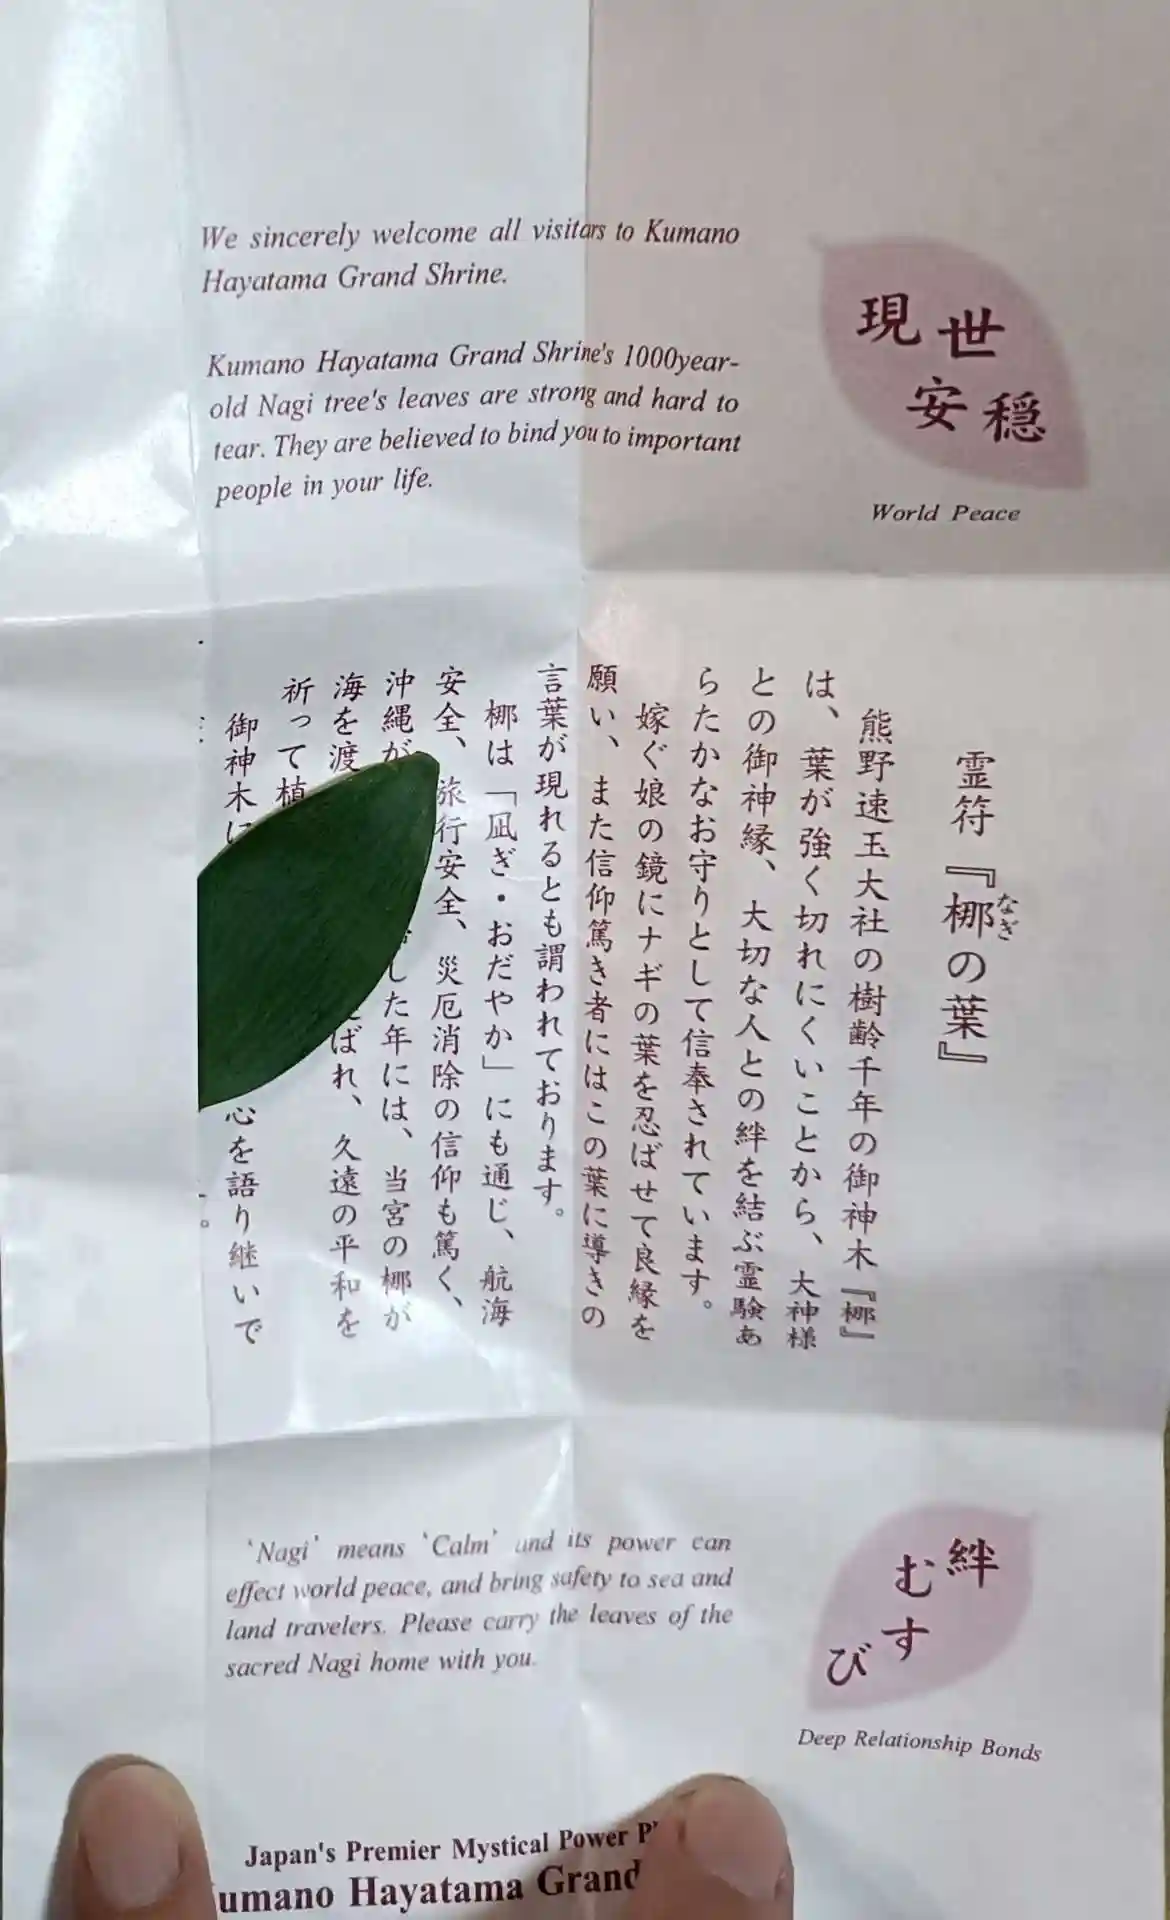 We sincerely welcome all visitors to Kumano
Hayatama Grand Shrine.
Kumano Hayatama Grand Shrine's 1000year-
old Nagi tree's leaves are strong and hard to
tear. They are believed to bind you to important
people in your life.
現世
安穏
World Peace
霊符『梛の葉』
なぎ
熊野速玉大社の樹齢千年の御神木『梛』
は、葉が強く切れにくいことから、大神様
との御神縁、大切な人との絆を結ぶ霊験あ
らたかなお守りとして信奉されています。
嫁ぐ娘の鏡にナギの葉を忍ばせて良縁を
願い、また信仰篤き者にはこの葉に導きの
言葉が現れるとも謂われております。
梛は「凪ぎ・おだやか」にも通じ、航海
安全、旅行安全、災厄消除の信仰も篤く、
沖縄が した年には、当宮の梛が
海を渡 ばれ、久遠の平和を
祈って植
御神木に 心を語り継いで
。
'Nagi' means 'Calm' and its power can
effect world peace, and bring safety to sea and
land travelers. Please carry the leaves of the
sacred Nagi home with you.
絆
むすび
Deep Relationship Bonds
Japan's Premier Mystical Power
umano Hayatama Grand